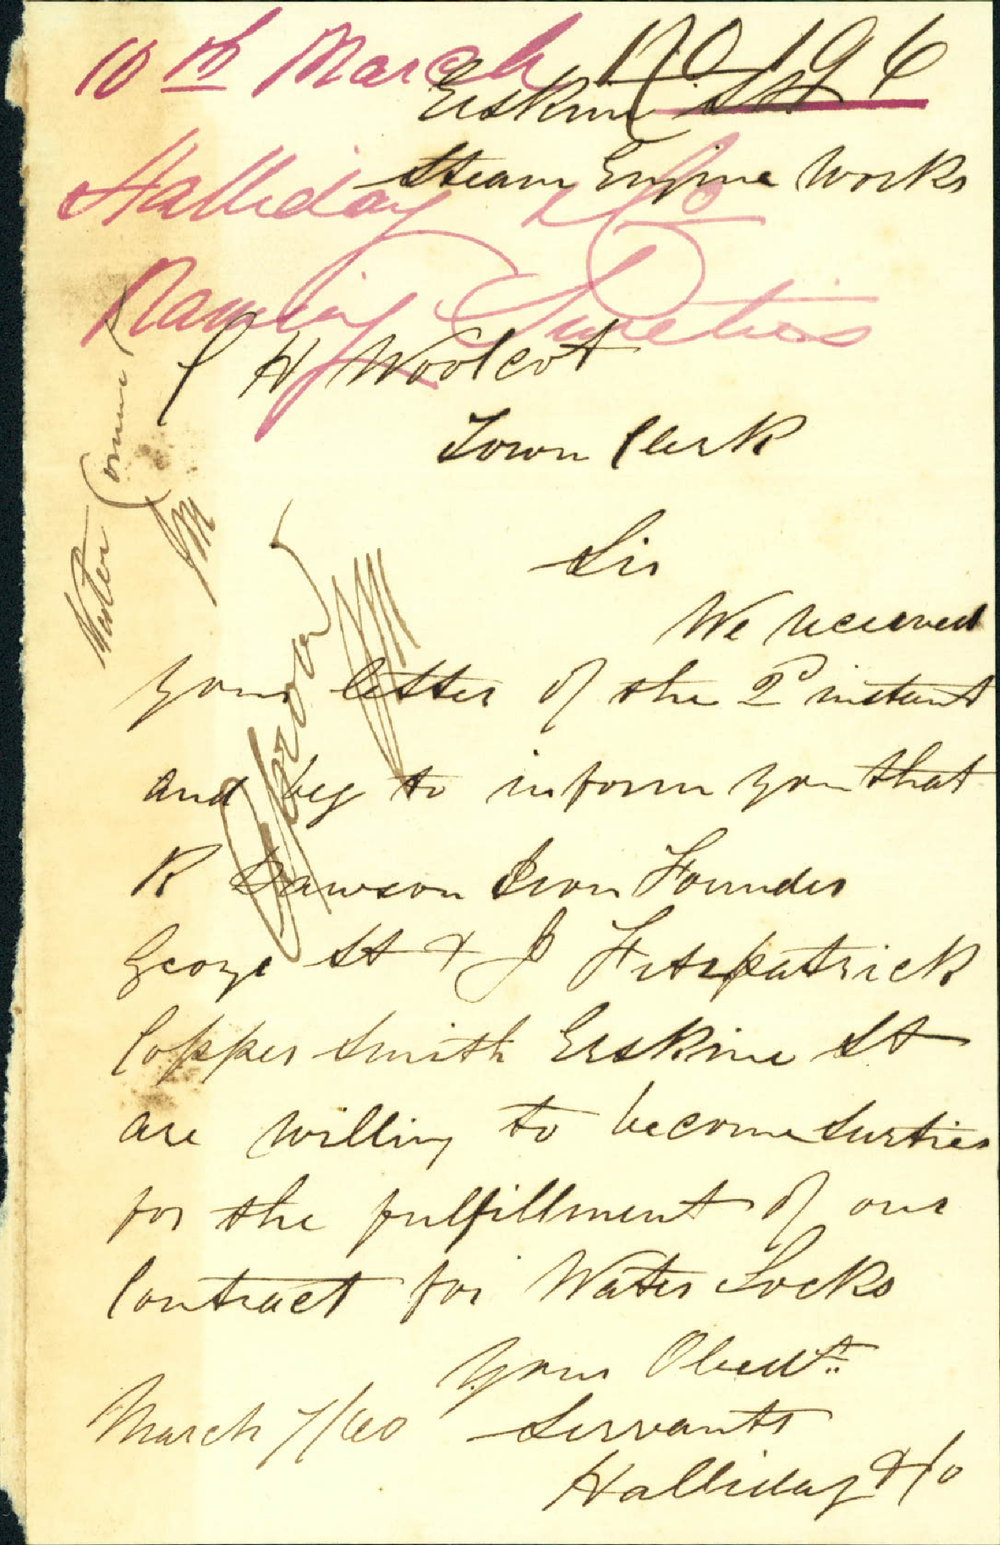 10th March No 196
Erskine St
Steam Engine Works
Halliday & Co
Naming Sureties
C H Woolcot
Town Clerk
Water Comme
JM
Approved
JM
Sir
We received
your letter of the 2d instant
and beg to inform you that
R Dawson Iron Founder
George St & J Fitzpatrick
Copper Smith Erskine St
are willing to become Surties
for the fulfillment of our
Contract for Water Locks
Your Obedt
Servants
March 7/60
Halliday & Co